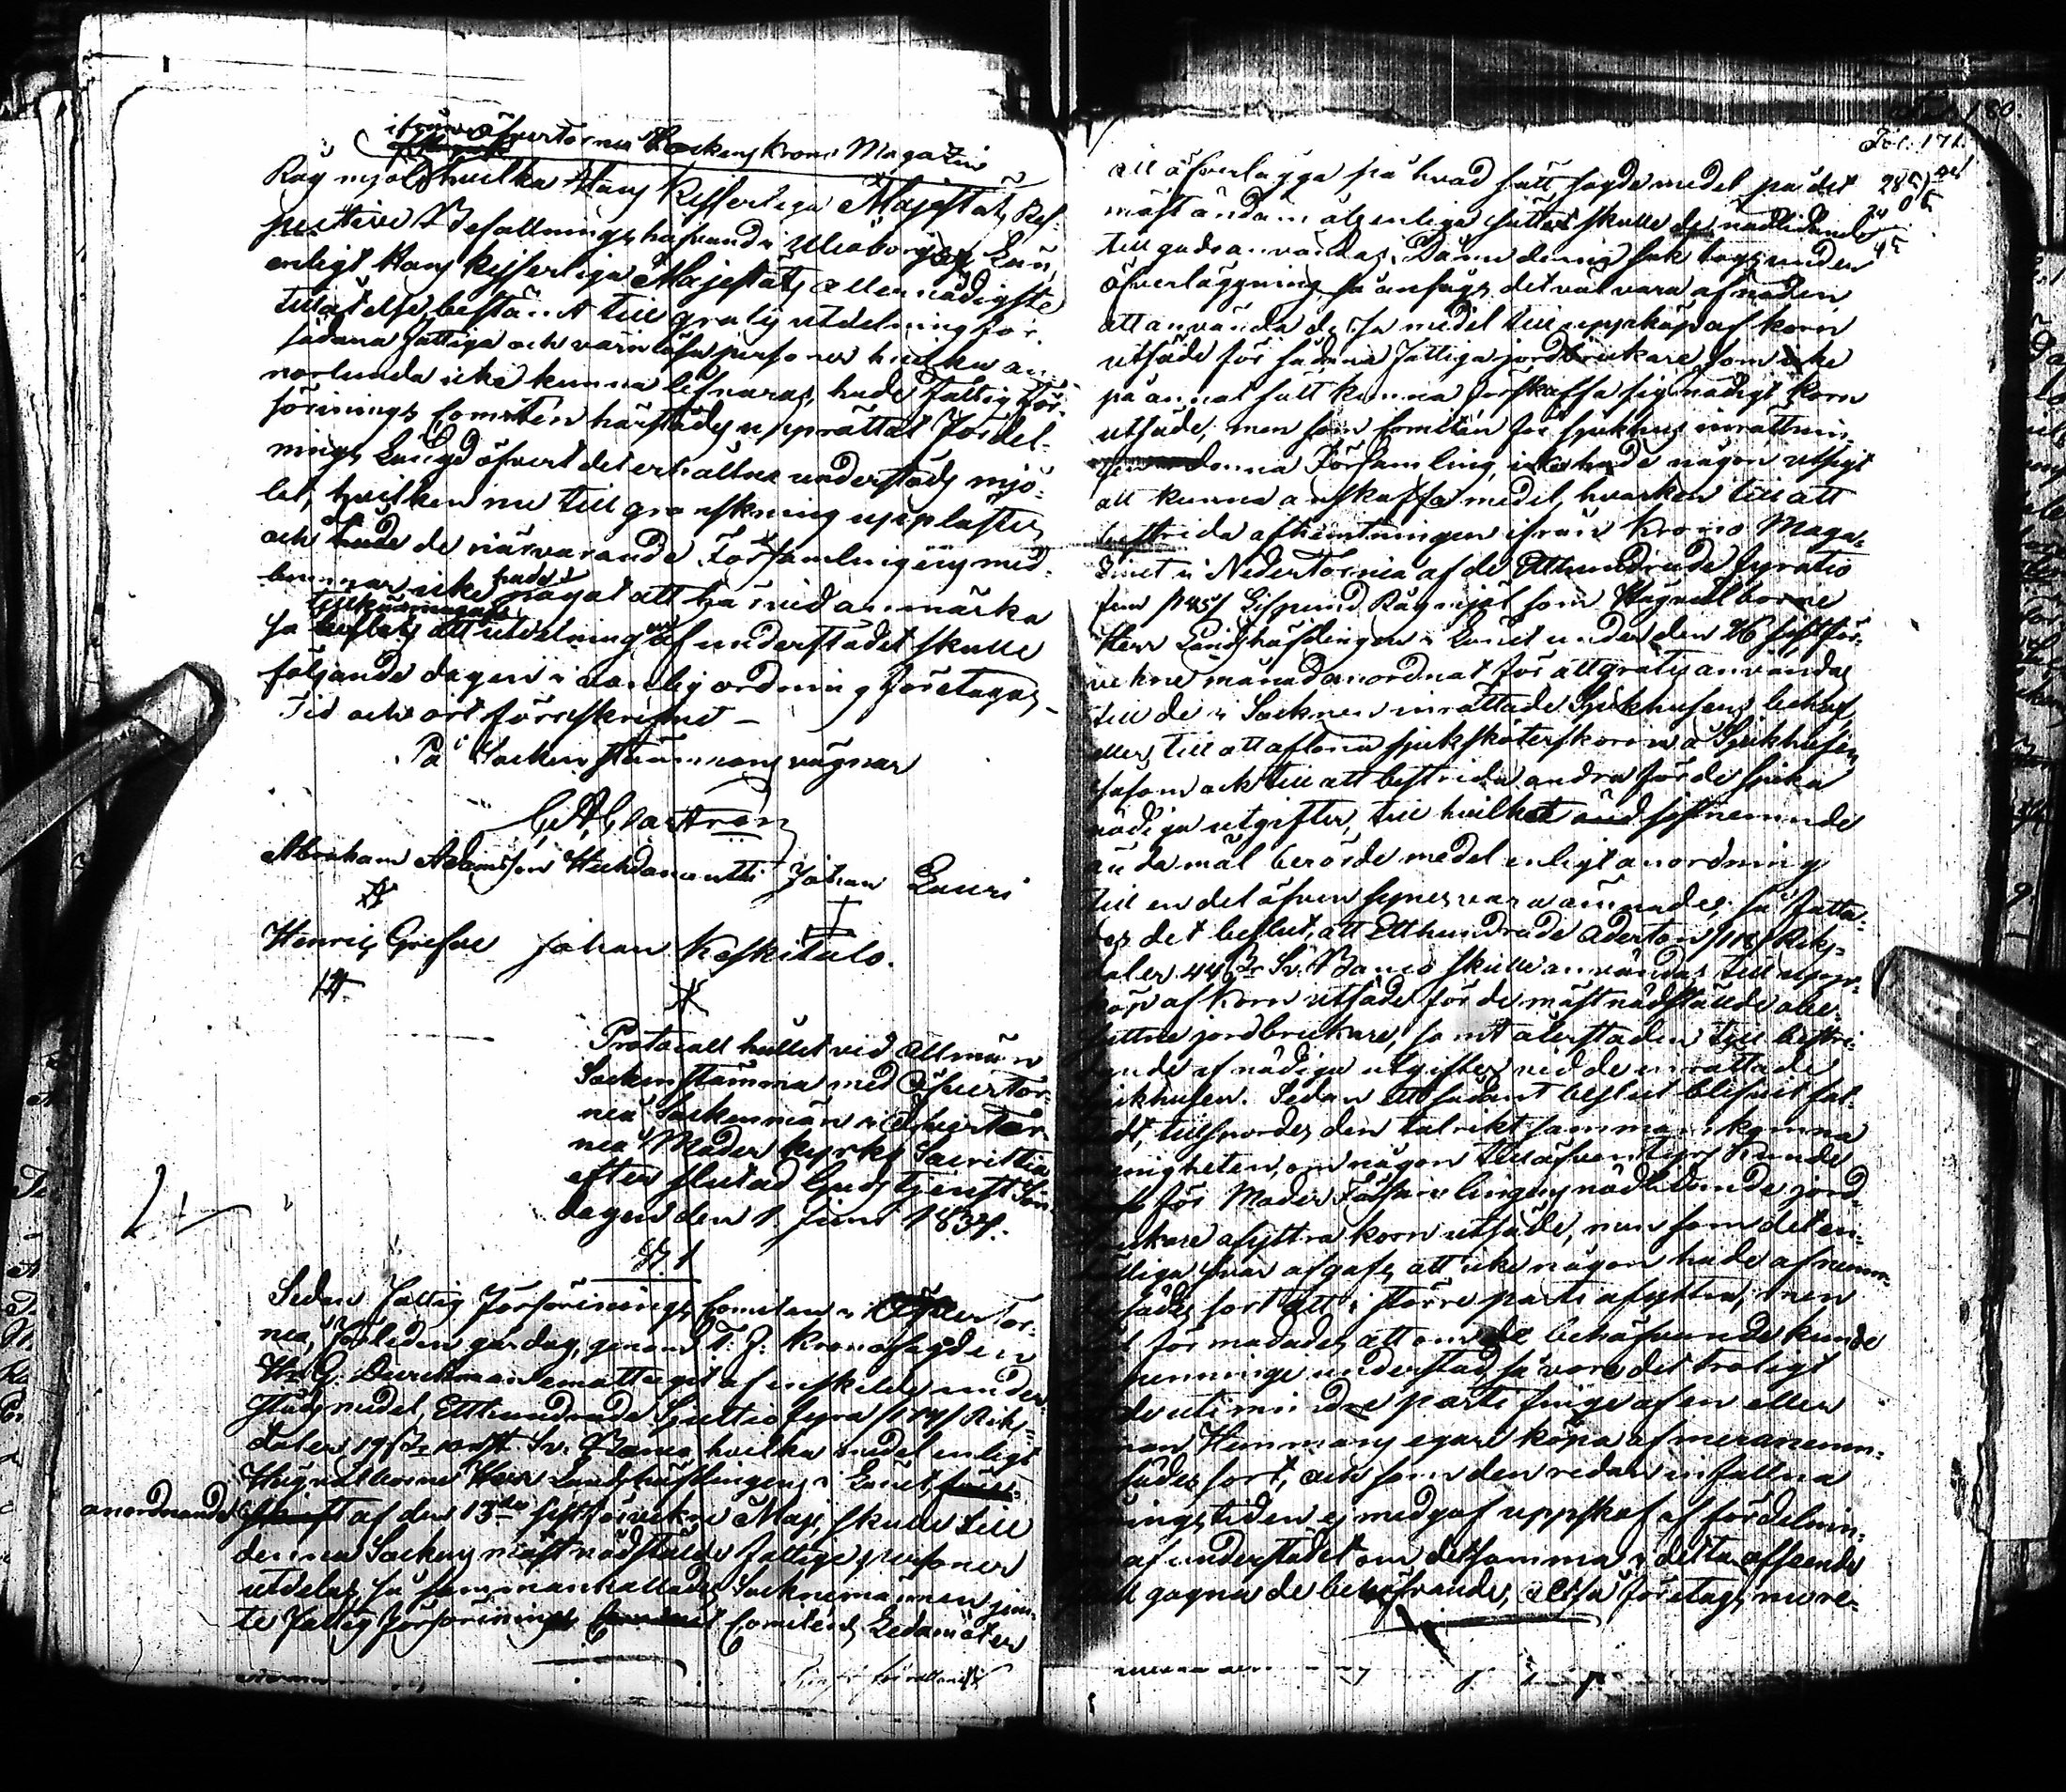 ifrån Öfvertorneå Sockens Krono Magazin
Råg mjöl, hvilka Hans Kejserliga Majestäts Res-
pective Befallningshafvande i Uleåborgs Län,
enligt Hans Kejserliga Majestäts allernådigste
tillåtelse, bestämt till gratis utdelning för
sådana fattiga och värnlösa personer hvilka an-
norlunda icke kunna lifnäras, hade Fattig För-
sörjnings Comitén härstädes upprättat Fördel-
nings Längd öfver det erhållna understöds mjö-
let, hvilken nu till granskning upplästes,
och de närvarande Församlingens med-
lemmar icke hade något att härvid anmärka
så tillkännagafs att utdelningen af understödet skulle
följande dagen i vanlig ordning företagas,
Tid och ort förrskrifne –
På Sockenstämmans vägnar
C. A. Castrén
Abraham Adamsson Huhdanantti Johan Lauri
Henric Grefve Johan Keskitalo.
Protocoll hållet vid allmän
Sockenstämma med Öfvertor-
neå Sockenmän i Öfvertor-
neå Moder kyrkas Sacristia
efter slutad Gudstjenst Sön-
dagen den 1. Juni 1834.
§. 1
Sedan Fattig Försörjnings Comitén i Öfver Tor-
neå, förleden gårdag, genom T. F. Kronofogden
H. G. Durchman emottagit af enskilde under-
stöds medel, Etthundrade Sjuttio fyra /174/ Riks-
daler Sv. Banco hvilka medel enligt
Högvälborne Herr Landshöfdingens i Länet
anordnande af den 13de sistförvekne Maji, skulle till
denna Sockens mäst nödställde fattige personer
utdelas, så sammankallades Sockne männen jem-
te Fattig Försörjnings Comiténs Ledamöter
Fol. 171.
att öfverlägga på hvad sätt sagde medel på det
mäst ändamålsenliga sättet skulle de nödlidande
till godo användas. Då nu denna sak togs under
öfverläggning så ansågs det väl vara af nöden
att använda dessa medel till uppköp af korn
utsäde för sådana fattiga jordbrukare, som icke
på annat sätt kunna förskaffa sig nödigt korn
utsäde; men som Comitén för sjukhus inrättnin-
denna Församling, icke hade någon utsigt
att kunna anskaffa medel, hvarken till att
bestrida afhemtningen ifrån Krono Maga-
zinet i Nedertorneå af de Etthundrade fyratio
fem /145/ Lispund Rågmjöl som Högvälborne
Herr Landshöfdingen i Länet under den 26 sistför-
vekne månad anordnat för att gratis användas
till de i Socknen inrättade Sjukhusens behof,
eller till att aflöna sjuksköterskorna å Sjukhusen
såsom ock till att bestrida andra för de sjuka
nödiga utgifter, till hvilket sistnemnde
ändamål berörde medel enligt anordning
till en del äfven synes vara ämnade; så fatta-
des det beslut, att Etthundrade Aderton /118/ Riks-
daler 44 Sv. Banco skulle användas till upp-
köp af korn utsäde för de mäst nödställde obe-
sutne jordbrukare, samt återstoden till bestri-
dande af nödiga utgifter vid de inrättade
sjukhusen. Sedan ett sådant beslut blifvit fat-
tadt, tillspordes den talrikt sammankomna
menigheten, om någon kunde
för Moder Församlingens nödlidande jord-
brukare afyttra korn utsäde, men som det en-
hälliga svar afgafs, att icke någon hade af nemn-
de sädes sort att i större parti afyttra, men
förmodades att om de behöfvande kunde
penninge understöd så vore det troligt
de uti mindre parti finge af en eller
annan Hemmans egare köpa af meranemn-
de sädes sort, och som den redan infallna
såningstiden ej medgaf uppskof af fördelnin-
gen af understödet om detsamma i detta afseende
skall gagna de behöfvande, altså företogs nu re-